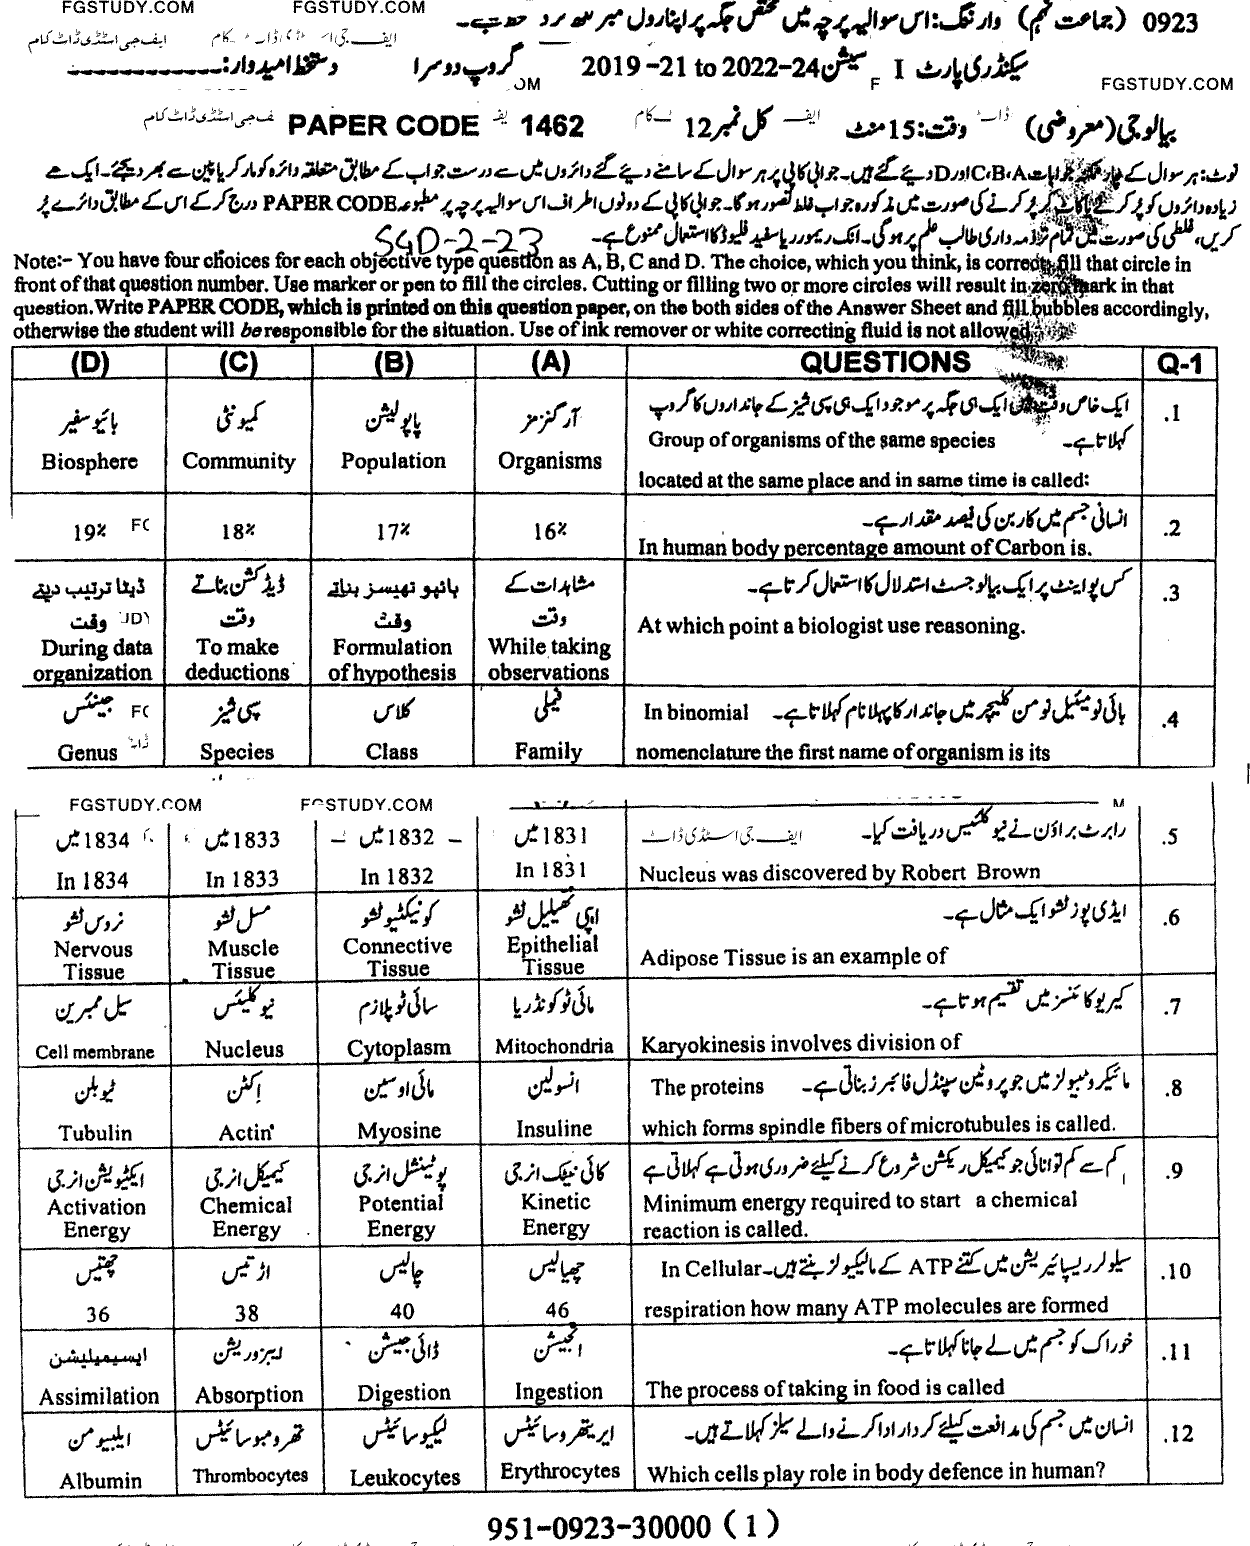 FGSTUDY.COM FGSTUDY.COM
0923 (جماعت نہم) وارننگ: اس سوالیہ پرچہ میں مختص جگہ پر اپنا رول نمبر
ایف جی اسٹڈی ڈاٹ کام
سیکنڈری پارٹ I سیشن 2019-21 to 2022-24 گروپ دوسرا دستخط امیدوار:
FGSTUDY.COM
بیالوجی (معروضی) وقت: 15 منٹ کل نمبر 12 PAPER CODE 1462
نوٹ: ہر سوال کے چار ممکنہ جوابات A، B، C اور D دیئے گئے ہیں۔ جوابی کاپی پر ہر سوال کے سامنے دیئے گئے دائروں میں سے درست جواب کے مطابق متعلقہ دائرہ کو مارکر یا پین سے بھر دیجئے۔ ایک سے
زیادہ دائروں کو پُر کرنے یا کاٹ کر پُر کرنے کی صورت میں مذکورہ جواب غلط تصور ہوگا۔ جوابی کاپی کے دونوں اطراف اس سوالیہ پرچہ پر مطبوعہ PAPER CODE درج کرکے اس کے مطابق دائرے پُر
کریں، غلطی کی صورت میں تمام تر ذمہ داری طالب علم پر ہوگی۔ انک ریموور یا سفید فلیوڈ کا استعمال ممنوع ہے۔
SGD-2-23
Note:- You have four choices for each objective type question as A, B, C and D. The choice, which you think, is correct, fill that circle in
front of that question number. Use marker or pen to fill the circles. Cutting or filling two or more circles will result in zero mark in that
question. Write PAPER CODE, which is printed on this question paper, on the both sides of the Answer Sheet and fill bubbles accordingly,
otherwise the student will be responsible for the situation. Use of ink remover or white correcting fluid is not allowed
(D) (C) (B) (A) QUESTIONS Q-1
بائیوسفیر کمیونٹی پاپولیشن آرگنزمز ایک خاص وقت میں ایک ہی جگہ پر موجود ایک ہی سپی شیز کے جانداروں کا گروپ .1
کہلاتا ہے۔ Group of organisms of the same species
Biosphere Community Population Organisms
located at the same place and in same time is called:
انسانی جسم میں کاربن کی فیصد مقدار ہے۔ .2
19% 18% 17% 16%
In human body percentage amount of Carbon is.
ڈیٹا ترتیب دیتے ڈیڈکشن بناتے ہائپو تھیسز بناتے مشاہدات کے کس پوائنٹ پر ایک بیالوجسٹ استدلال کا استعمال کرتا ہے۔ .3
وقت وقت وقت وقت At which point a biologist use reasoning.
During data To make Formulation While taking
organization deductions of hypothesis observations
جینئس سپی شیز کلاس فیملی بائی نومئیل نومن کلیچر میں جاندار کا پہلا نام کہلاتا ہے۔ In binomial .4
Genus Species Class Family nomenclature the first name of organism is its
FGSTUDY.COM FGSTUDY.COM
1834 میں 1833 میں 1832 میں 1831 میں رابرٹ براؤن نے نیوکلئیس دریافت کیا۔ ایف جی اسٹڈی ڈاٹ .5
In 1834 In 1833 In 1832 In 1831 Nucleus was discovered by Robert Brown
نروس ٹشو مسل ٹشو کونیکٹیو ٹشو اپی تھیلیل ٹشو ایڈی پوز ٹشو ایک مثال ہے۔ .6
Nervous Muscle Connective Epithelial
Tissue Tissue Tissue Tissue Adipose Tissue is an example of
سیل ممبرین نیوکلیئس سائی ٹوپلازم مائی ٹوکونڈریا کیریوکائنسز میں تقسیم ہوتا ہے۔ .7
Cell membrane Nucleus Cytoplasm Mitochondria Karyokinesis involves division of
ٹیوبلن ایکٹن مائی اوسین انسولین مائیکروٹیبولز میں جو پروٹین سپنڈل فائبرز بناتی ہے۔ The proteins .8
Tubulin Actin Myosine Insuline which forms spindle fibers of microtubules is called.
ایکٹیویشن انرجی کیمیکل انرجی پوٹینشل انرجی کائی نیٹک انرجی کم سے کم توانائی جو کیمیکل ریکشن شروع کرنے کیلئے ضروری ہوتی ہے کہلاتی ہے .9
Activation Chemical Potential Kinetic Minimum energy required to start a chemical
Energy Energy Energy Energy reaction is called.
چھتیس اڑتیس چالیس چھیالیس سیلولر ریسپائریشن میں کتنے ATP کے مالیکیولز بنتے ہیں۔ In Cellular .10
36 38 40 46 respiration how many ATP molecules are formed
ایسیمیلیشن ایبزورپشن ڈائی جیشن انجیشن خوراک کو جسم میں لے جانا کہلاتا ہے۔ .11
Assimilation Absorption Digestion Ingestion The process of taking in food is called
ایلبیومن تھرومبوسائیٹس لیکوسائیٹس ایریتھروسائیٹس انسان میں جسم کی مدافعت کیلئے کردار ادا کرنے والے سیلز کہلاتے ہیں۔ .12
Albumin Thrombocytes Leukocytes Erythrocytes Which cells play role in body defence in human?
951-0923-30000 (1)